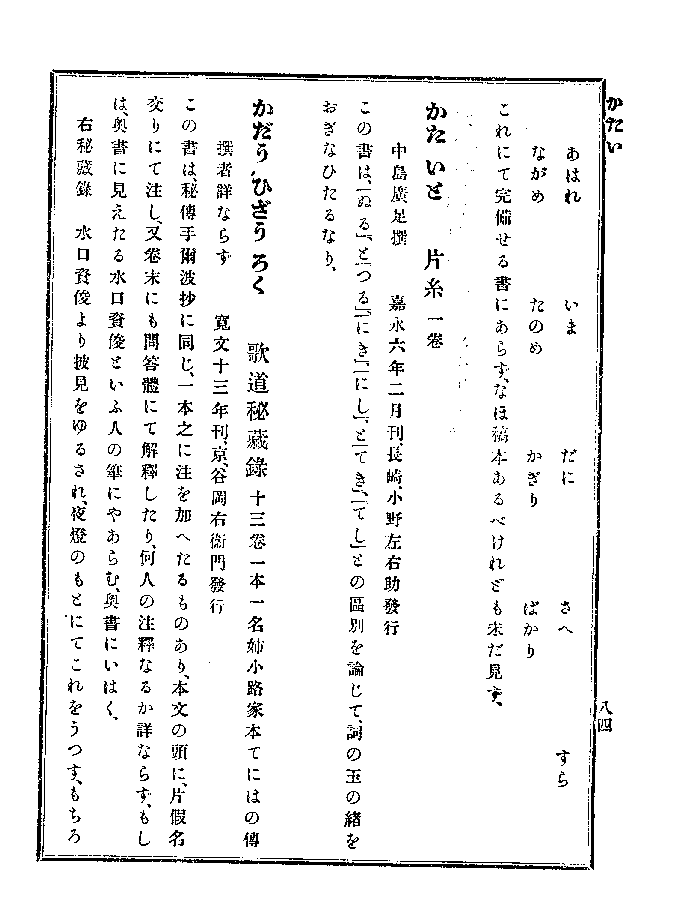 かたい
八四
あはれ　いま　だに　さへ　すら
ながめ　たのめ　かぎり　ばかり
これにて完備せる書にあらず、なほ稿本あるべけれども未だ見ず、
かたいと　片糸 一卷
中島廣足撰　嘉永六年二月刊、長崎、小野左右助發行
この書は、「ぬる」「と「つる」「にき」「にし」、と「てき」、「てし」との區別を論じて、詞の玉の緒を
おぎなひたるなり、
かだう、ひざう ろく　歌道秘藏錄 十三卷一本一名姉小路家本てにはの傳
撰者詳ならず　寛文十三年刊、京、谷岡右衞門發行
この書は、秘傳手爾波抄に同じ、一本之に注を加へたるものあり、本文の頭に、片假名
交りにて注し、又卷末にも問答體にて解釋したり、何人の注釋なるか詳ならず、もし
は、奥書に見えたる水口資俊といふ人の筆にやあらむ、奥書にいはく、
右秘藏錄　水口資俊より披見をゆるされ、夜燈のもとにてこれをうつす、もちろ